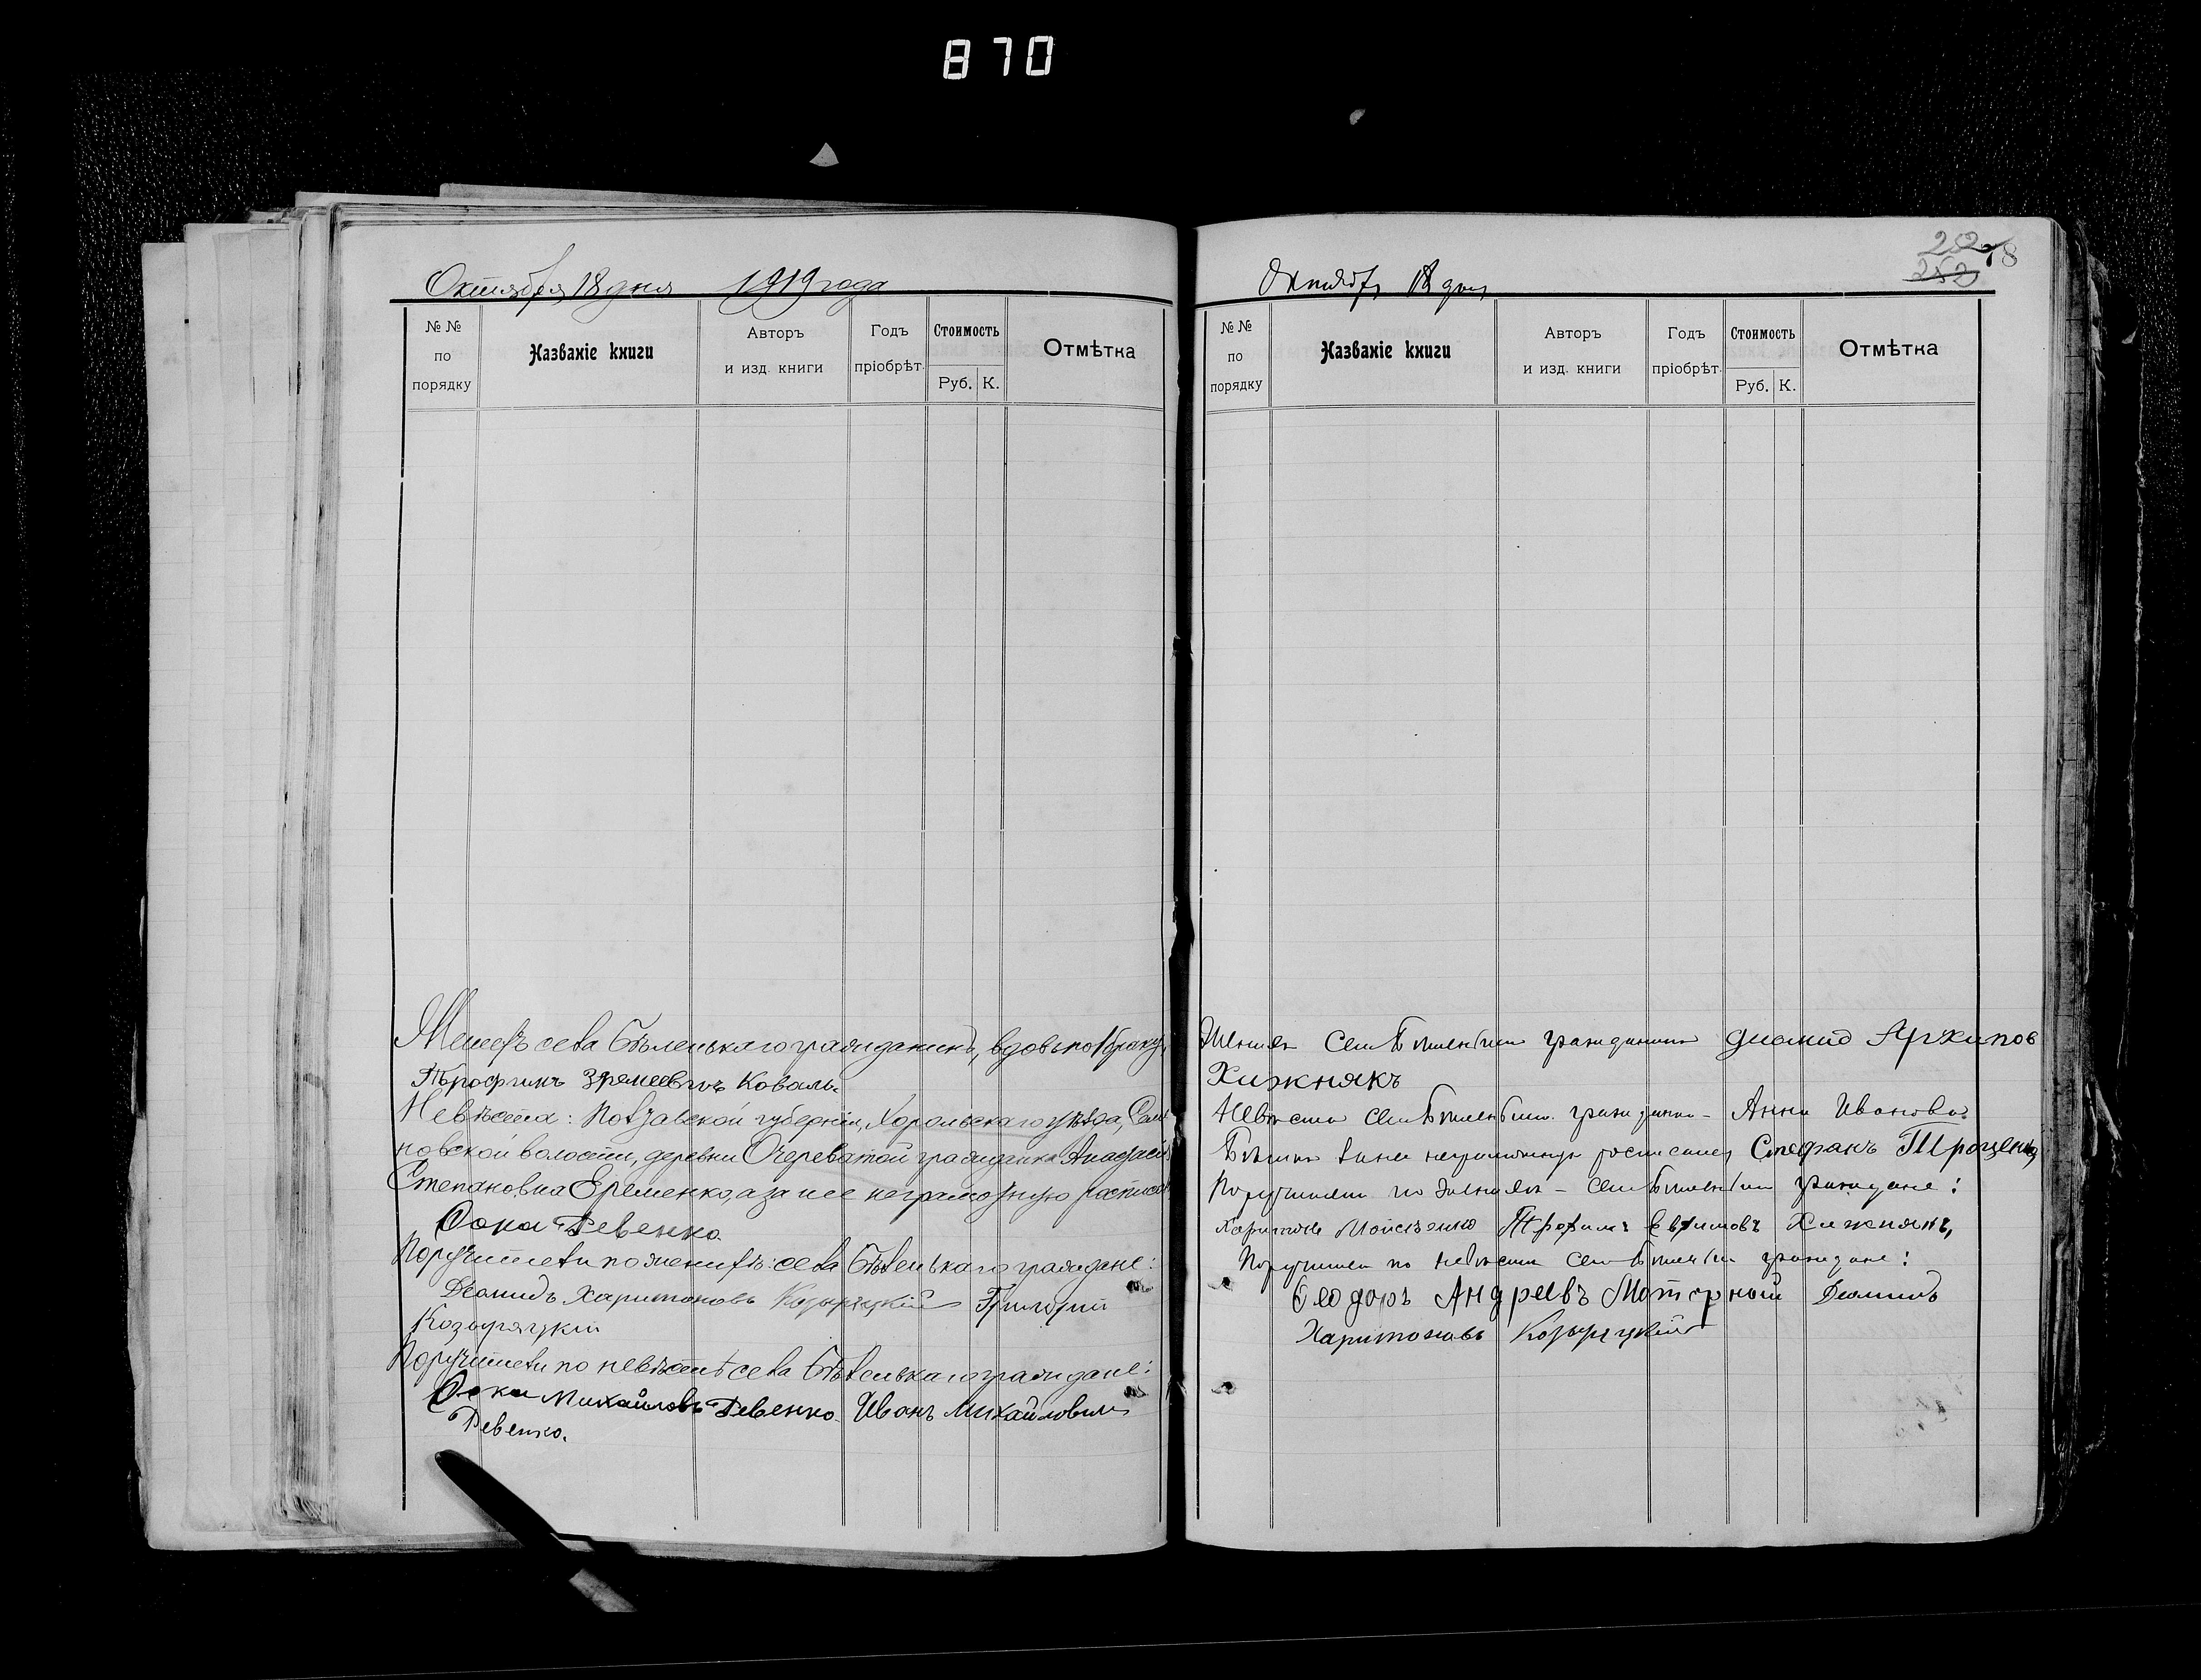 870
Октября 18 дня 1919 года
№№ по порядку
Названіе книги
Авторъ и изд. книги
Годъ пріобрѣт.
Стоимость
Руб. К.
Отмѣтка
Женихъ села Бѣленькаго гражданинъ, вдовъ по I браку,
Трофимъ Еремеевичъ Коваль.
Невѣста: Полтавской губерніи, Хорольскаго уѣзда,
новской волости, деревни Очереватой гражданка Анастасія
Степановна Еременко, а за нее неграмотную расписал
Фока Ревенко.
Поручители по женихѣ: села Бѣленькаго граждане:
Деомидъ Харитоновъ Козыряцкій Григорій
Козыряцкій
Поручители по невѣстѣ села Бѣленькаго граждане:
Фока Михайловъ Ревенко. Иванъ Михайловичъ
Ревенко.
Октября 18 дня
252
№№ по порядку
Названіе книги
Авторъ и изд. книги
Годъ пріобрѣт.
Стоимость
Руб. К.
Отмѣтка
Женихъ села Бѣленькаго гражданинъ Диомид Архипов
Хижнякъ
Невѣста села Бѣленькаго гражданка - Анна Иванова
за нея неграмотную росписался Стефанъ Троценко
Поручители по женихѣ - села Бѣленькаго граждане:
Харитонъ Мойсѣенко Трофимъ Евфимовъ Хижнякъ,
Поручители по невѣстѣ села Бѣленькаго граждане:
Ѳеодоръ Андреевъ Моторный Деомидъ
Харитоновъ Козыряцкій